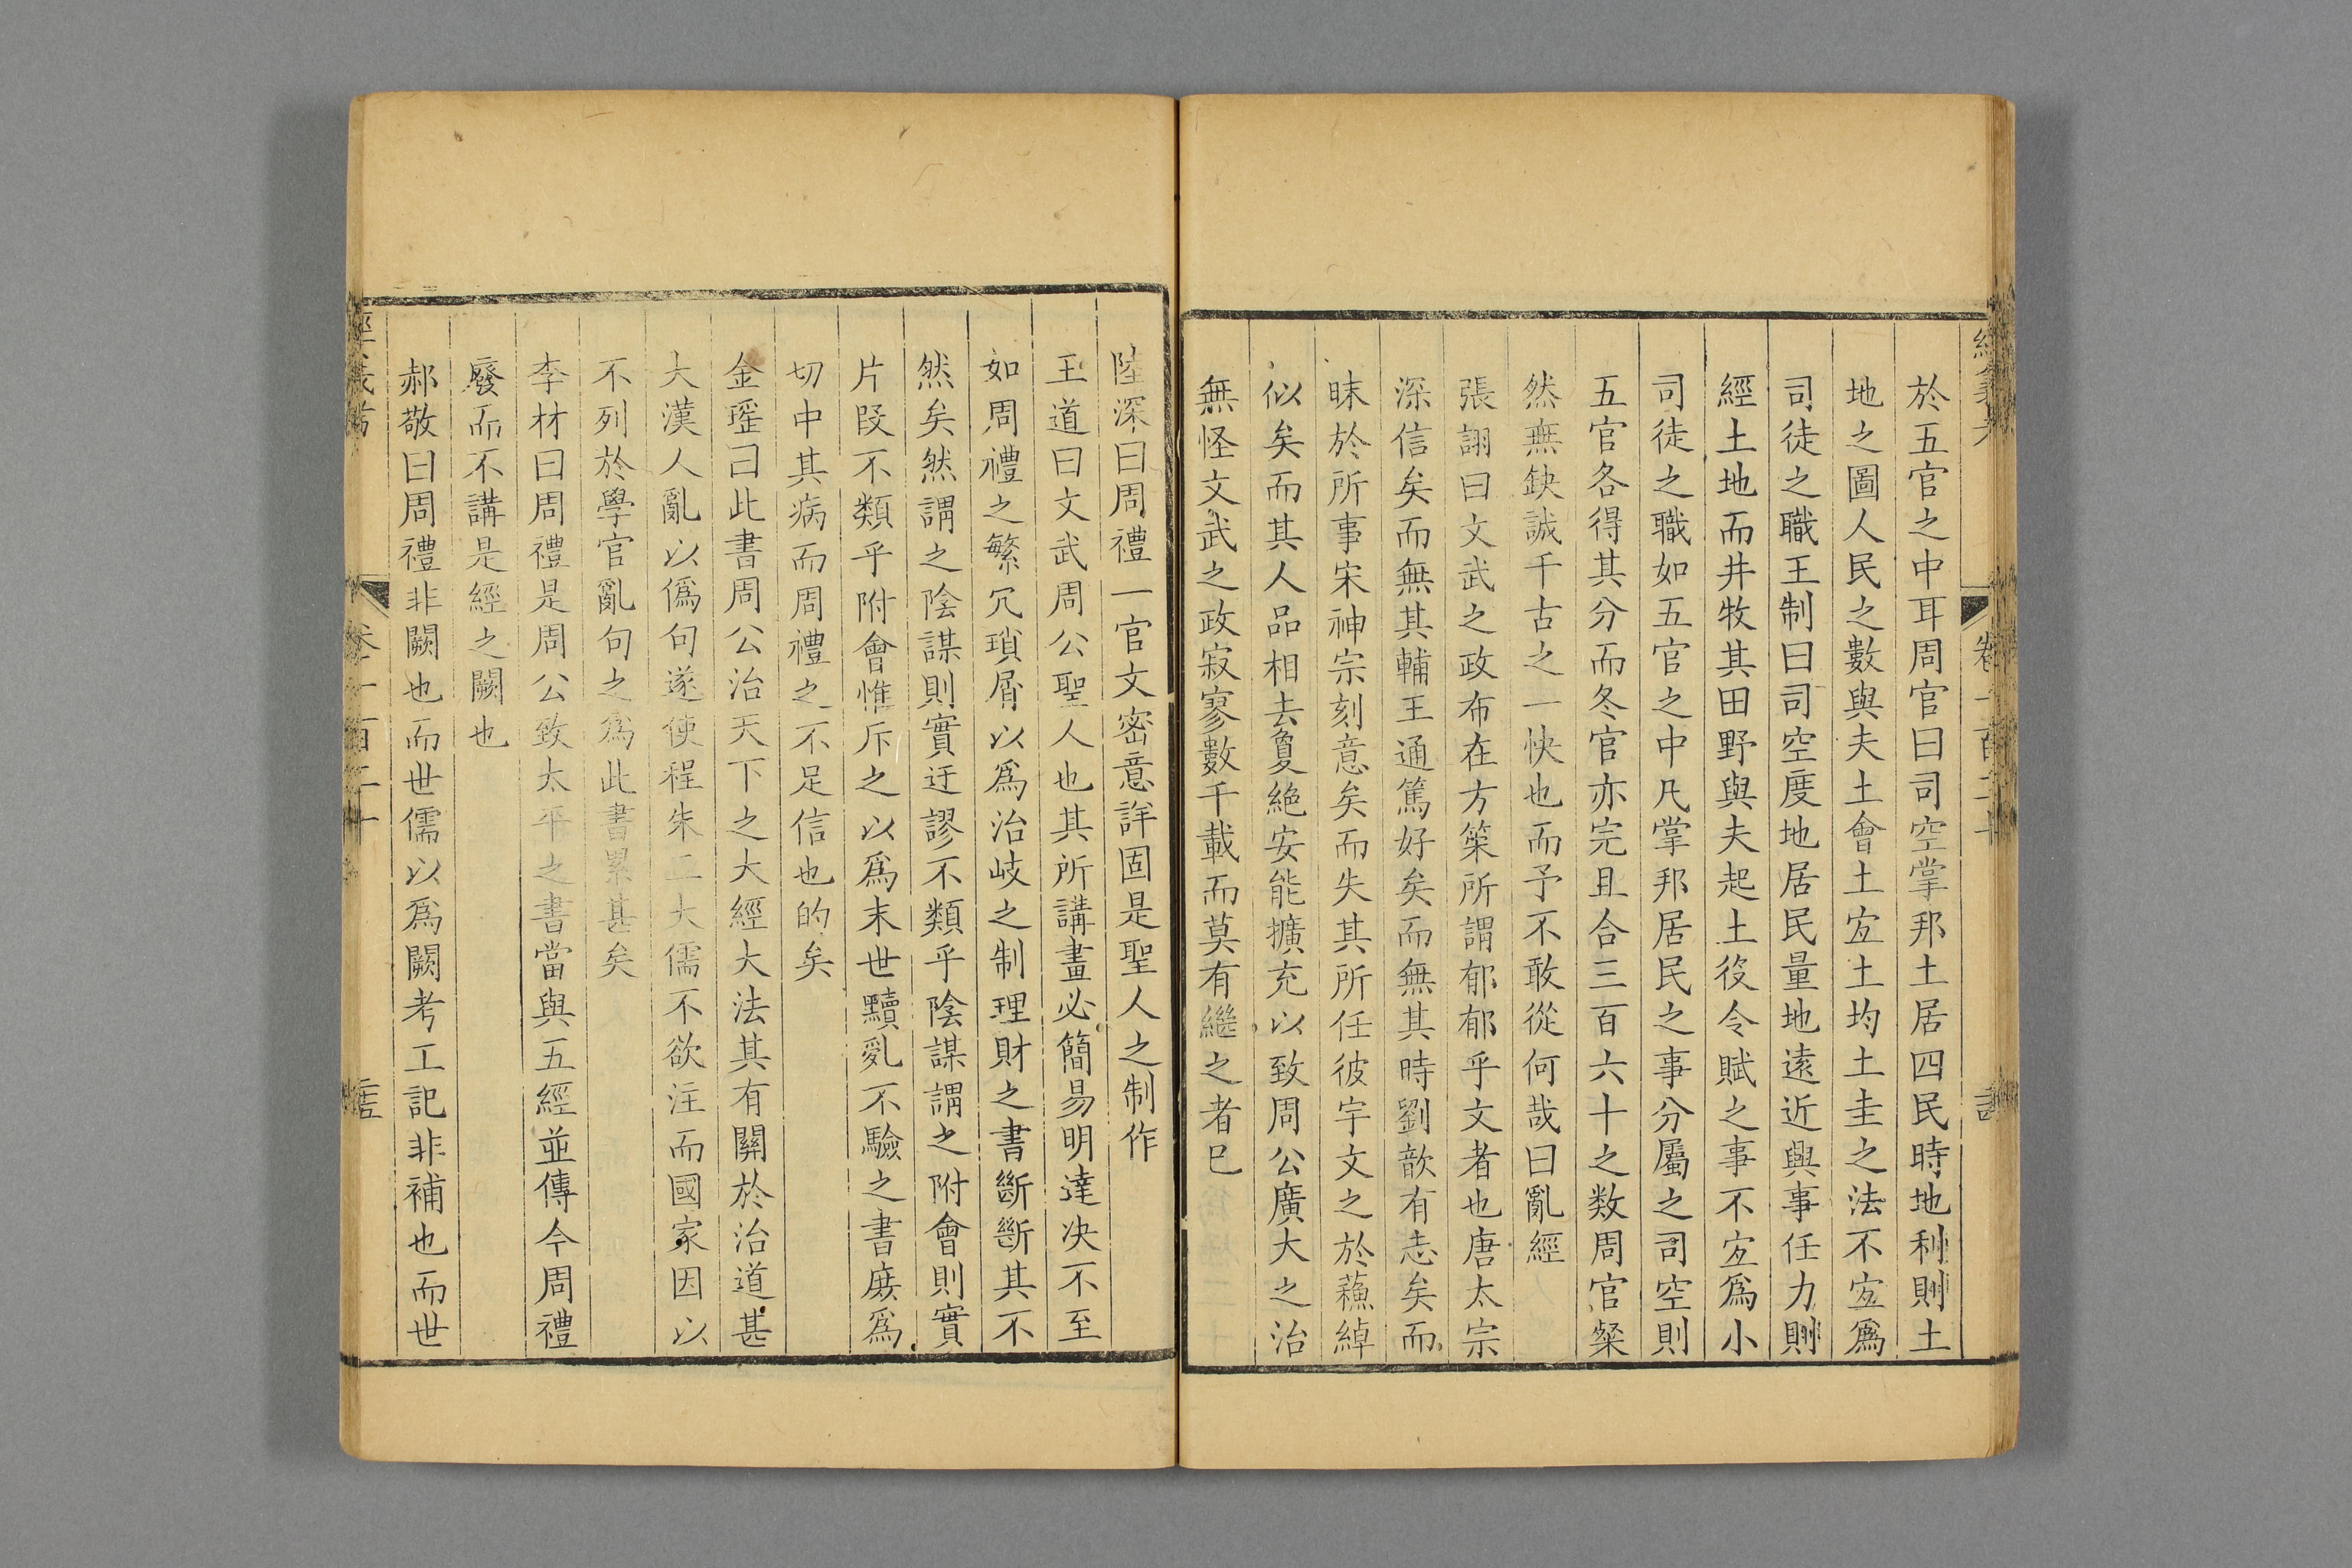 於五官之中耳周官曰司空掌邦土居四民時地利則土
地之圖人民之數與夫土會土宐土均土圭之法不宐爲
司徒之職王制曰司空度地居民量地遠近興事任力則
經土地而井牧其田野與夫起土役令賦之事不宐爲小
司徒之職如五官之中凡掌邦居民之事分屬之司空則
五官各得其分而冬官亦完且合三百六十之数周官粲
然無缺誠千古之一快也而予不敢從何哉曰亂經
張詡曰文武之政布在方策所謂郁郁乎文者也唐太宗
深信矣而無其輔王通篤好矣而無其時劉歆有志矣而
昧於所事宋神宗刻意矣而失其所任彼宇文之於蘓綽
似矣而其人品相去敻絶安能擴充以致周公廣大之治
無怪文武之政寂寥數千載而莫有繼之者已
陸深曰周禮一官文密意詳固是聖人之制作
王道曰文武周公聖人也其所講畫必簡易明達决不至
如周禮之繁冗瑣屑以爲治岐之制理財之書斷斷其不
然矣然謂之陰謀則實迂謬不類乎陰謀謂之附會則實
片段不類乎附會惟斥之以爲末世黷亂不驗之書庻爲
切中其病而周禮之不足信也的矣
金瑶曰此書周公治天下之大經大法其有關於治道甚
大漢人亂以僞句遂使程朱二大儒不欲注而國家因以
不列於學官亂句之爲此書累甚矣
李材曰周禮是周公致太平之書當與五經並傳今周禮
廢而不講是經之闕也
郝敬曰周禮非闕也而世儒以爲闕考工記非補也而世
經義考
卷一百二十